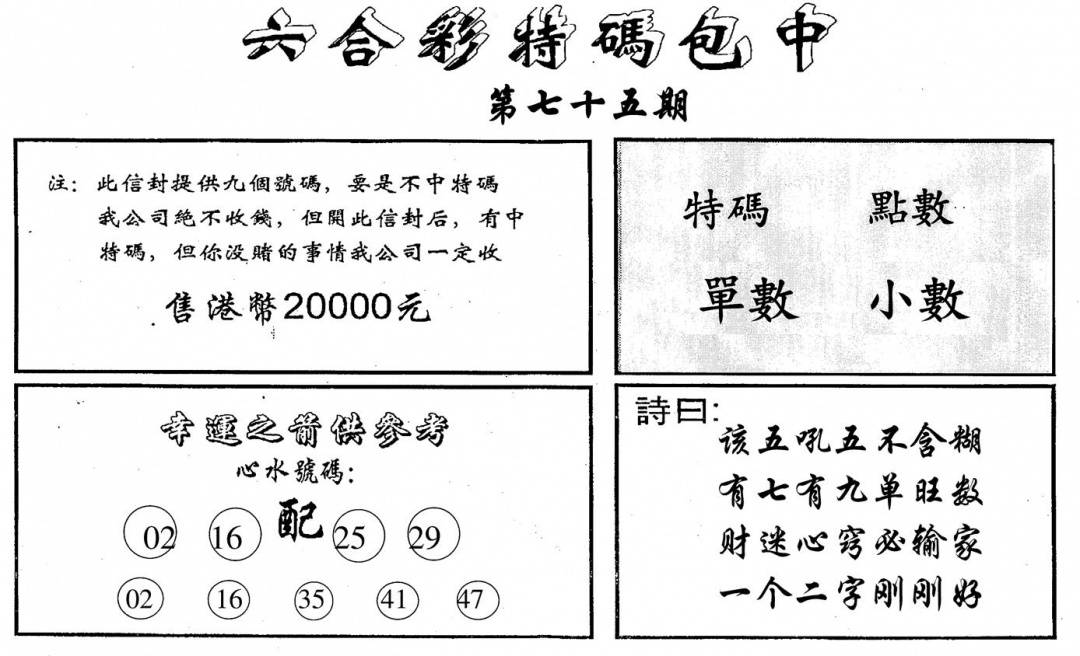 六合彩特碼包中
第七十五期
注：此信封提供九個號碼，要是不中特碼
我公司絕不收錢，但開此信封后，有中
特碼，但你没賭的事情我公司一定收
售港幣20000元
特碼 點數
單數 小數
幸運之箭供參考
心水號碼：
02 16 配 25 29
02 16 35 41 47
詩曰：
该五吼五不含糊
有七有九单旺数
财迷心窍必输家
一个二字刚刚好